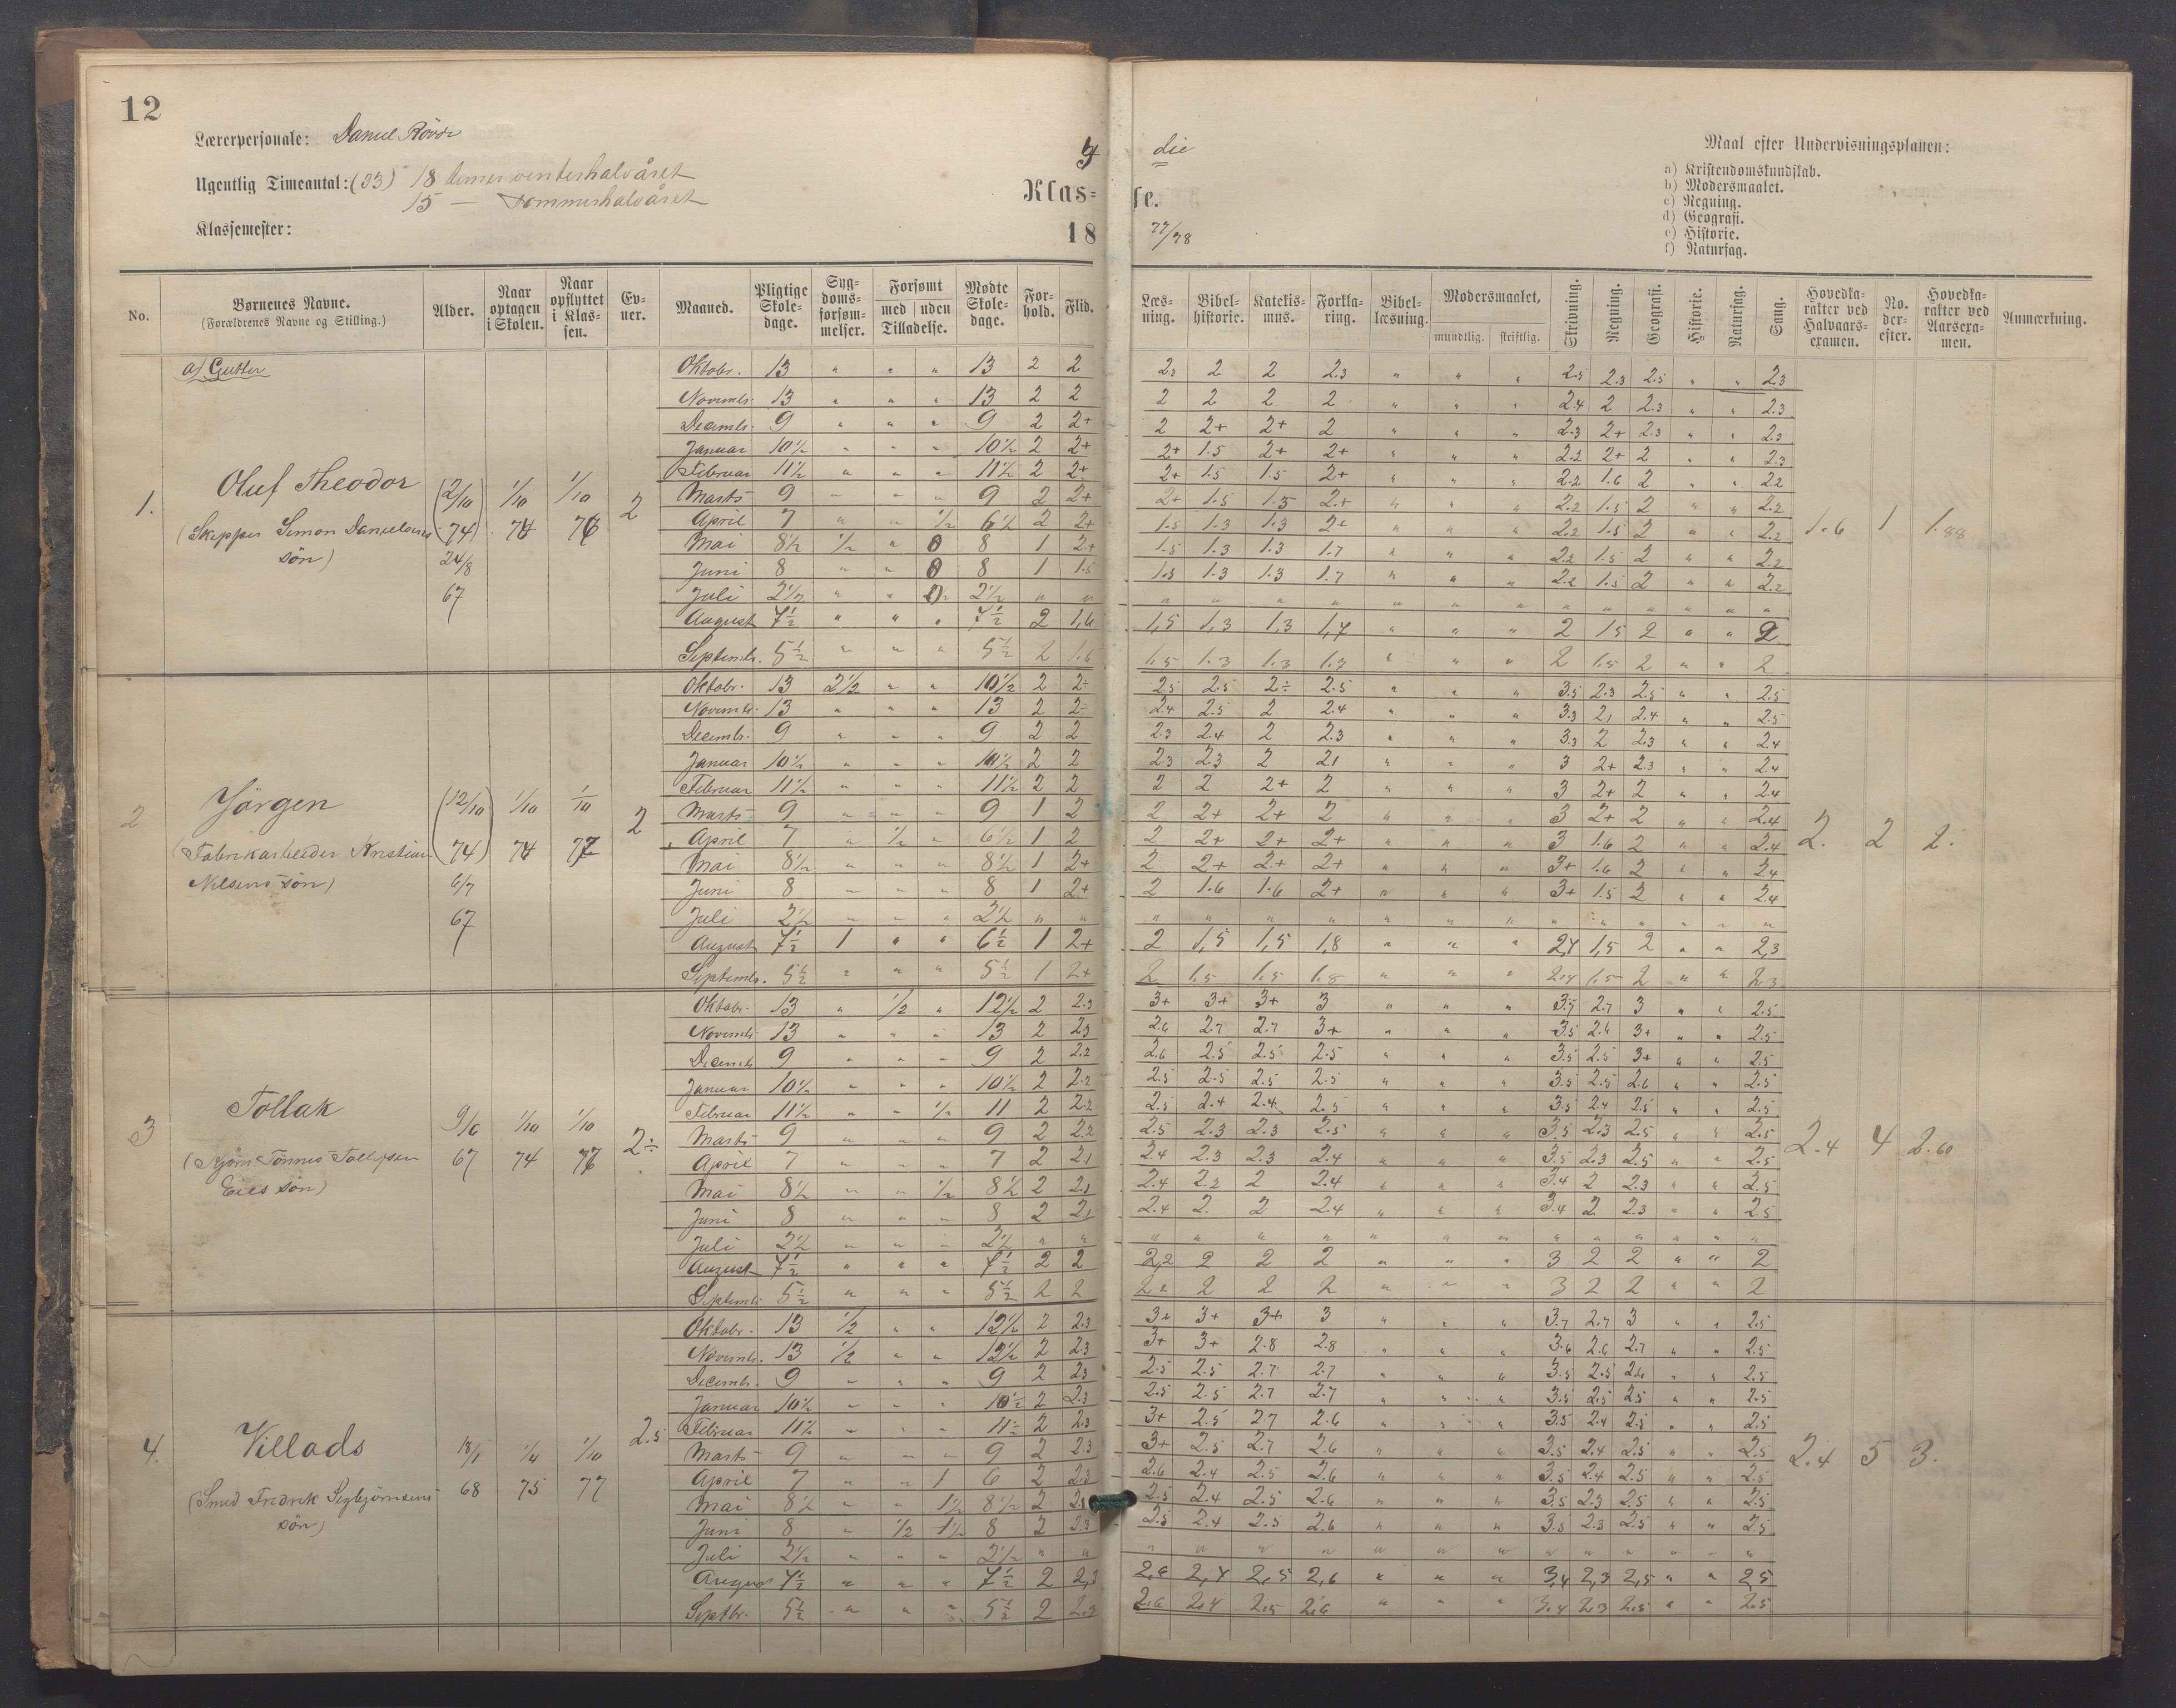 12
Lærerpersonale: Daniel
Ugentlig Timeantal: (33) 18 timer vinterhalvåret
15 — sommerhalvåret
Klassemester:
die
Klas= se.
18 77/78
Maal efter Undervisningsplanen:
a) Kristendomskundskab.
b) Modersmaalet.
c) Regning.
d) Geografi.
e) Historie.
f) Naturfag.
No. Børnenes Navne. (Forældrenes Navne og Stilling.) Alder. Naar optagen i Skolen. Naar opflyttet i Klassen. Evner. Maaned. Pligtige Skoledage. Sygdomsforsømmelser. Forsømt med uden Tilladelse. Mødte Skoledage. Forhold. Flid. Læsning. Bibelhistorie. Katekismus. Forklaring. Bibellæsning. Modersmaalet, mundtlig. skriftlig. Skrivning. Regning. Geografi. Historie. Naturfag. Sang. Hovedkarakter ved Halvaarsexamen. No. derefter. Hovedkarakter ved Aarsexamen. Anmærkning.
a) Gutter
1. Oluf Theodor (Skipper Simon Danielsens søn) (2/10 74) 24/8 67 1/10 1/10 2 1.6 1 1.88
Oktobr. 13 " " " 13 2 2 2.3 2 2 2.3 " " " 2.5 2.3 2.5 " " 2.3
Novembr. 13 " " " 13 2 2 2 2 2 2 " " " 2.4 2 2.3 " " 2.3
Decembr. 9 " " " 9 2 2+ 2 2+ 2+ 2 " " " 2.3 2+ 2.3 " " 2.3
Januar 10½ " " " 10½ 2 2+ 2+ 1.5 2+ 2+ " " " 2.2 2+ 2 " " 2.3
Februar 11½ " " " 11½ 2 2+ 2+ 1.5 1.5 2+ " " " 2.2 1.6 2 " " 2.2
Marts 9 " " " 9 2 2+ 2+ 1.5 1.5 2+ " " " 2.2 1.5 2 " " 2.2
April 7 " " ½ 6½ 2 2+ 1.5 1.3 1.3 2+ " " " 2.2 1.5 2 " " 2.2
Mai 8½ ½ " 0 8 1 2+ 1.5 1.3 1.3 1.7 " " " 2.2 1.5 2 " " 2.2
Juni 8 " " 0 8 1 1.5 1.5 1.3 1.3 1.7 " " " 2.2 1.5 2 " " 2.2
Juli 2½ " " 2½ " " " " " " " " " " " " " " "
August 7½ " " " 7½ 2 1,6 1,5 1,3 1,3 1,7 " " " 2 1.5 2 " " 2
Septembr. 5½ " " " 5½ 2 1.6 1.5 1.3 1.3 1.7 " " " 2 1.5 2 " " 2
2 Jörgen (Fabrikarbeider Kristian Nilsens søn) (12/10 74) 6/7 67 1/10 1/10 2 2. 2 2.
Oktobr. 13 2½ " " 10½ 2 2÷ 2.5 2.5 2÷ 2.5 " " " 3.5 2.3 2.5 " " 2.5
Novembr. 13 " " " 13 2 2÷ 2.4 2.5 2 2.4 " " " 3.3 2.1 2.4 " " 2.5
Decembr. 9 " " " 9 2 2 2.3 2.4 2 2.3 " " " 3.3 2 2.3 " " 2.4
Januar 10½ " " " 10½ 2 2 2.3 2.3 2 2.1 " " " 3 2+ 2.3 " " 2.4
Februar 11½ " " " 11½ 2 2 2 2 2+ 2 " " " 3 2+ 2 " " 2.4
Marts 9 " " " 9 1 2 2 2+ 2+ 2 " " " 3 2+ 2 " " 2.4
April 7 " ½ " 6½ 1 2 2 2+ 2+ 2+ " " " 3 1.6 2 " " 2.4
Mai 8½ " " " 8½ 1 2+ 2 2+ 2+ 2+ " " " 3+ 1.6 2 " " 2.4
Juni 8 " " " 8 1 2+ 2 1.6 1.6 2+ " " " 3+ 1.5 2 " " 2.4
Juli 2½ " " " 2½ " " " " " " " " " " " " " " "
August 7½ 1 " " 6½ 1 2+ 2 1,5 1,5 1,8 " " " 2,7 1,5 2 " " 2,3
Septembr. 5½ " " " 5½ 1 2+ 2 1.5 1.5 1.8 " " " 2.7 1.5 2 " " 2.3
3 Tollak (Tønnes Tollefsen Eies søn) 9/6 67 1/10 74 1/10 2÷ 2.4 4 2.60
Oktobr. 13 " ½ " 12½ 2 2.3 3+ 3+ 3+ 3 " " " 3.7 2.7 3 " " 2.5
Novembr. 13 " " " 13 2 2.3 2.6 2.7 2.7 3+ " " " 3.5 2.6 3+ " " 2.5
Decemb. 9 " " " 9 2 2.2 2.6 2.5 2.5 2.5 " " " 3.5 2.5 3+ " " 2.5
Januar 10½ " " " 10½ 2 2.2 2.5 2.5 2.5 2.5 " " " 3.5 2.5 2.6 " " 2.5
Februar 11½ " " ½ 11 2 2.2 2.5 2.4 2.4 2.5 " " " 3.5 2.4 2.5 " " 2.5
Marts 9 " " " 9 2 2.2 2.5 2.3 2.3 2.5 " " " 3.5 2.3 2.5 " " 2.5
April 7 " " " 7 2 2.1 2.4 2.3 2.3 2.4 " " " 3.5 2.3 2.5 " " 2.5
Mai 8½ " " ½ 8½ 2 2.1 2.4 2.2 2 2.4 " " " 3.4 2 2.3 " " 2.5
Juni 8 " " " 8 2 2.1 2.4 2. 2 2.4 " " " 3.4 2 2.3 " " 2.5
Juli 2½ " " " 2½ " " " " " " " " " " " " " " "
August 7½ " " " 7½ 2 2 2,2 2 2 2 " " " 3 2 2 " " 2
Septembr. 5½ " " " 5½ 2 2 2.2 2 2 2 " " " 3 2 2 " " 2
4. Villads (Smed Fredrik Segbjørnsens søn) 18/1 68 75 1/10 77 2.5 2.4 5 3.
Oktobr. 13 ½ " " 12½ 2 2.3 3+ 3+ 3+ 3 " " " 3.7 2.7 3 " " 2.5
Novembr. 13 ½ " " 12½ 2 2.3 3+ 3+ 2.8 2.8 " " " 3.6 2.6 2.7 " " 2.5
Decembr. 9 " " " 9 2 2.3 2.5 2.5 2.7 2.7 " " " 3.5 2.5 2.6 " " 2.5
Januar 10½ " " " 10½ 2 2.3 2.5 2.5 2.7 2.7 " " " 3.5 2.5 2.5 " " 2.5
Februar 11½ " " " 11½ 2 2.3 3+ 2.5 2.7 2.6 " " " 3.5 2.4 2.5 " " 2.5
Marts 9 " " " 9 2 2.3 3+ 2.5 2.7 2.6 " " " 3.5 2.4 2.5 " " 2.5
April 7 " " 1 6 2 2.3 2.6 2.4 2.5 2.6 " " " 3.5 2.4 2.5 " " 2.5
Mai 8½ " " 8½ 2 2.3 2.5 2.4 2.5 2.6 " " " 3.5 2.3 2.5 " " 2.5
Juni 8 " ½ 8 2 2.3 2.5 2.4 2.5 2.6 " " " 3.5 2.3 2.5 " " 2.5
Juli 2½ " " " 2½ " " " " " " " " " " " " " " "
August 7½ " " " 7½ 2 2,3 2,6 2,4 2,5 2,6 " " " 3,4 2,3 2,5 " " 2,5
Septbr. 5½ " " " 5½ 2 2.3 2.6 2.4 2.5 2.6 " " " 3.4 2.3 2.5 " " 2.5